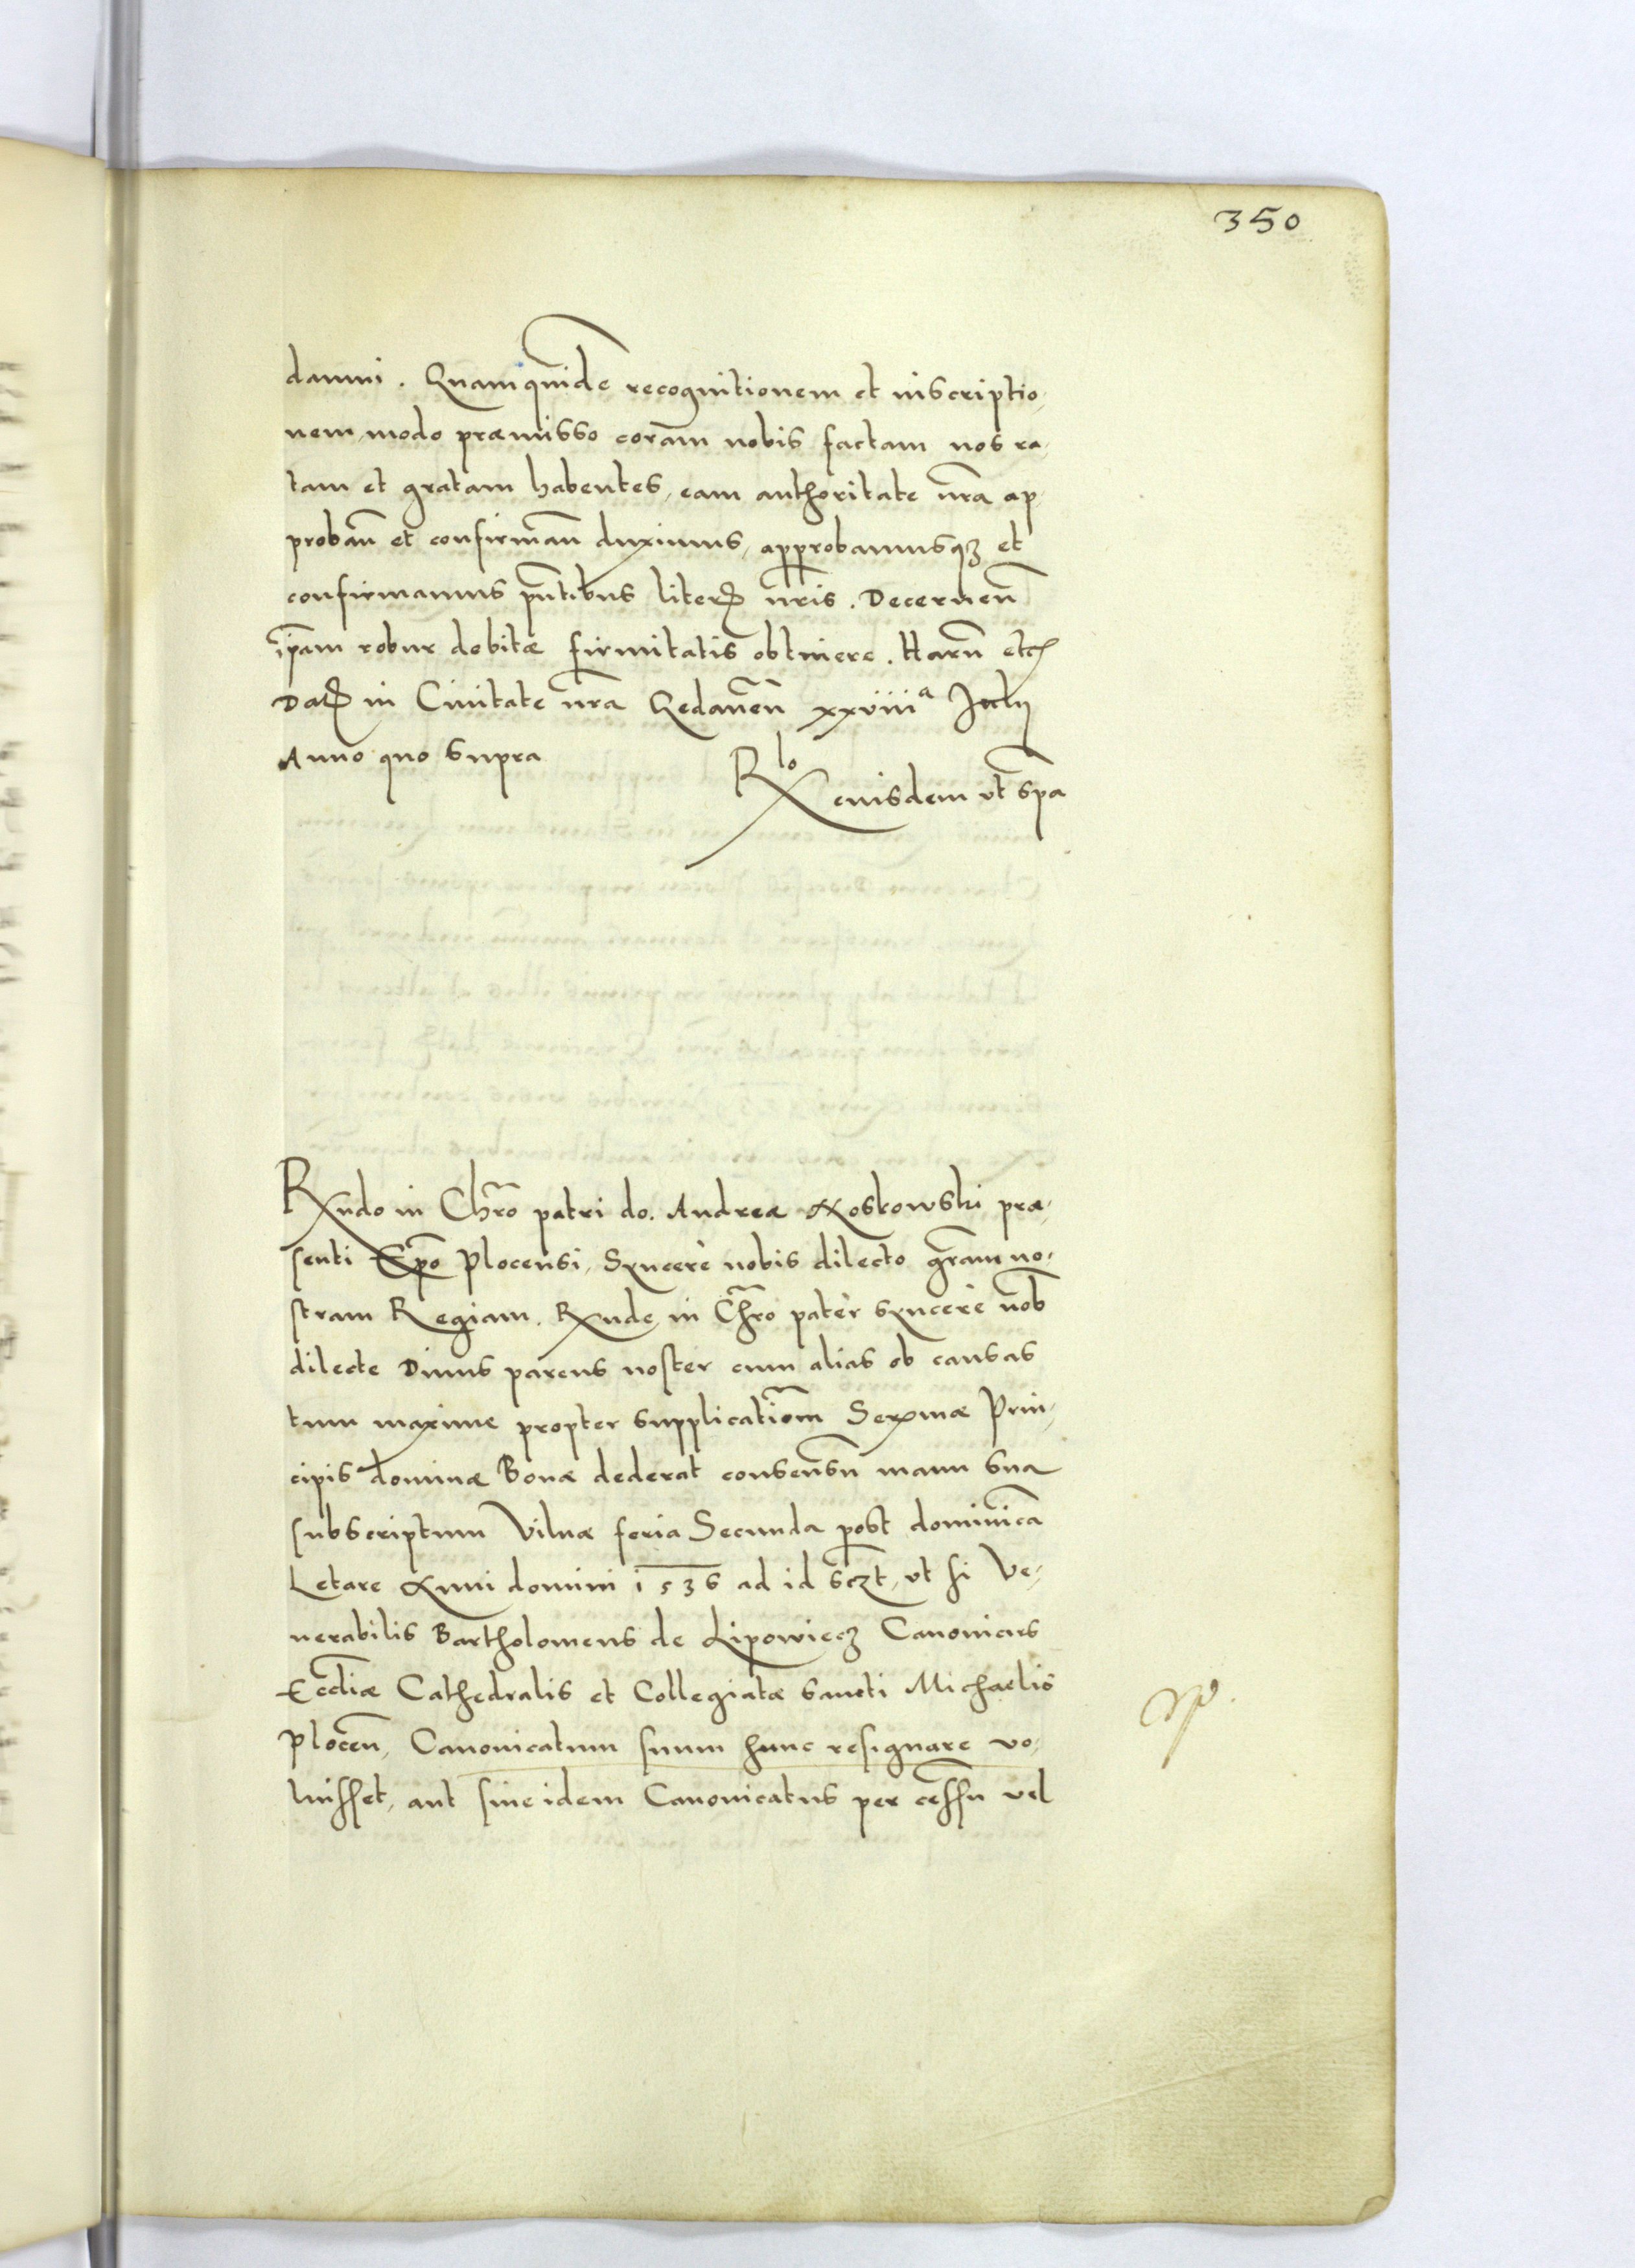 350
damni. Quamquidē recognitionem et inscriptio,
nem, modo præmisso coram nobis factam nos ra,
tam et gratam habentes, eam authoritate n̄ra ap,
proban̄ et confirman̄ duximus, approbamusqꝫ et
confirmamus pn̄tibus literꝭ n̄ris. Decernen̄
ip̄am robur debitæ firmitatis obtinere. Harū etcꝭ
Datꝭ in Civitate n̄ra Gedanen̄ xxviiiᵃ Julij
Anno quo supra
Rlo eiusdem vt sp̄a
Rxndo in Chr̄o patri do. Andreæ Noskowski præ,
senti Ep̄o Plocensi, Syncerè nobis dilecto gr̄am no,
stram Regiam. Rxnde in Chr̄o pater syncerè nob̄
dilecte Divus parens noster cum alias ob causas
tum maxime propter supplicatiōm Serxmæ Prin,
cipis dominæ Bonæ dederat consensū manu sua
subscriptum Vilnæ feria Secunda post dominicā
Letare Anni domini 1536 ad id sczt, vt si Ve,
nerabilis Bartholomeus de Lipowiecz Canonicus
Eccliæ Cathedralis et Collegiatæ sancti Michaelis
Plocen̄, Canonicatum suum hunc resignare vo,
luisset, aut sive idem Canonicatus per cessū vel